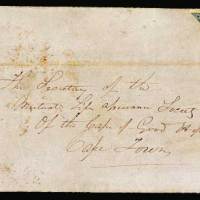 The Secretary of the
Mutual Life Assurance Society
Of the Cape of Good Hope
Cape Town